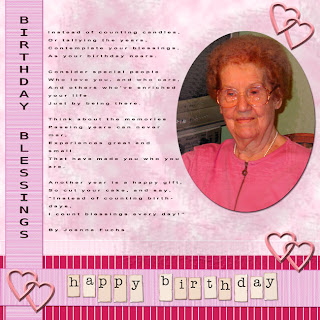 BIRTHDAY BLESSINGS
Instead of counting candles,
Or tallying the years,
Contemplate your blessings,
As your birthday nears.
Consider special people
Who love you, and who care,
And others who've enriched
your life
Just by being there.
Think about the memories
Passing years can never
mar,
Experiences great and
small
That have made you who you
are.
Another year is a happy gift,
So cut your cake, and say,
"Instead of counting birth-
days,
I count blessings every day!"
By Joanna Fuchs
happy birthday